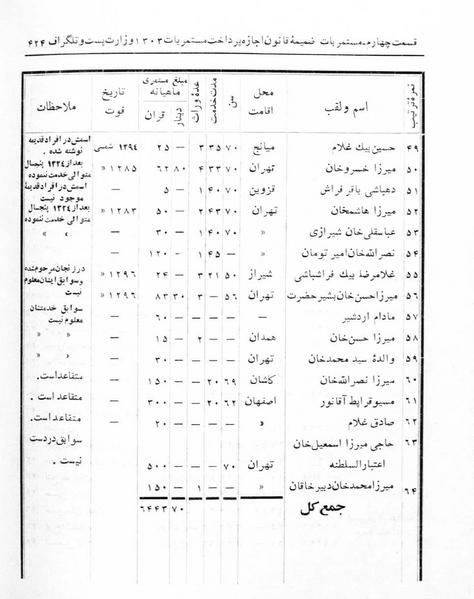 قسمت چهارم - مستمریات ضمیمهٔ قانون اجازه پرداخت مستمریات ۱۳۰۳ وزارت پست و تلگراف ۴۲۴
نمرهٔ ترتیب اسم و لقب محل اقامت سن مدت خدمت عدهٔ وراث مبلغ مستمری ماهیانه قران دینار تاریخ فوت ملاحظات
۴۹ حسین بیك غلام میانج ۷۰ ۳۵ ۳ ۲۵ — ۱۲۹۴ شمسی اسمش در افراد قدیمه نوشته شده .
۵۰ میرزا خسروخان تهران ۷۰ ۳۳ ۴ ۶۲ ۸۰ ۱۲۸۵ » بعد از ۱۳۲۴ پنجسال متوالی خدمت ننموده
۵۱ دهباشی باقر فراش قزوین ۷۰ ۴۰ ۱ ۵ — اسمش در افراد قدیمه موجود نیست
۵۲ میرزا هاشمخان تهران ۷۰ ۴۳ ۲ ۵۰ — ۱۲۸۳ » بعد از ۱۳۲۴ پنجسال متوالی خدمت ننموده
۵۳ عباسقلی خان شیرازی » ۷۰ ۴۰ ۱ ۳۰ — » »
۵۴ نصرالله خان امیر تومان » — ۴۵ ۱ ۱۲۰ —
۵۵ غلامرضا بیك فراشباشی شیراز ۵۰ ۲۱ ۳ ۲۴ — ۱۲۹۶ » در زنجان مرحوم شده و سوابق ایشان معلوم نیست
۵۶ میرزا حسن خان بشیر حضرت تهران ۵۶ — ۳ ۸۳ ۳۰ ۱۲۹۶ »
۵۷ مادام اردشیر — — — — ۶۰ — سوابق خدمتشان معلوم نیست
۵۸ میرزا حسن خان همدان — — ۲ ۱۵ — » »
۵۹ والدهٔ سید محمدخان تهران — — — ۳۰ — » »
۶۰ میرزا نصرالله خان کاشان ۶۹ ۲۰ — ۱۵۰ — متقاعد است.
۶۱ مسیو قراپط آقانور اصفهان ۶۲ ۲۰ — ۳۰۰ — متقاعد است .
۶۲ صادق غلام » — — — ۲۰ — متقاعد است .
۶۳ حاجی میرزا اسمعیل خان سوابق در دست
اعتبار السلطنه تهران ۷۰ — — ۵۰۰ — نیست .
۶۴ میرزا محمدخان دبیر خاقان » — — ۱ ۱۵۰ —
جمع کل ۶۴۴۳ ۷۰